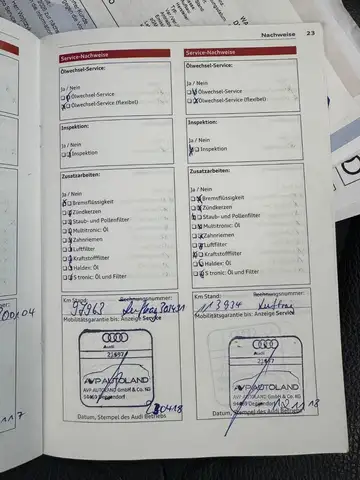 Nachweise 23
Service-Nachweise
Ölwechsel-Service:
Ja / Nein
Ölwechsel-Service
Ölwechsel-Service (flexibel)
Inspektion:
Ja / Nein
Inspektion
Zusatzarbeiten:
Ja / Nein
Bremsflüssigkeit
Zündkerzen
Staub- und Pollenfilter
Multitronic: Öl
Zahnriemen
Luftfilter
Kraftstofffilter
Haldex: Öl
S tronic: Öl und Filter
Km Stand: Rechnungsnummer:
97963
Mobilitätsgarantie bis: Anzeige Service
Audi
22697
AVP AUTOLAND
AVP AUTOLAND GmbH & Co. KG
94469 Deggendorf
Datum, Stempel des Audi Betriebs
Service-Nachweise
Ölwechsel-Service:
Ja / Nein
Ölwechsel-Service
Ölwechsel-Service (flexibel)
Inspektion:
Ja / Nein
Inspektion
Zusatzarbeiten:
Ja / Nein
Bremsflüssigkeit
Zündkerzen
Staub- und Pollenfilter
Multitronic: Öl
Zahnriemen
Luftfilter
Kraftstofffilter
Haldex: Öl
S tronic: Öl und Filter
Km Stand: Rechnungsnummer:
113934
Mobilitätsgarantie bis: Anzeige Service
Audi
22697
AVP AUTOLAND
AVP AUTOLAND GmbH & Co. KG
94469 Deggendorf
Datum, Stempel des Audi Betriebs